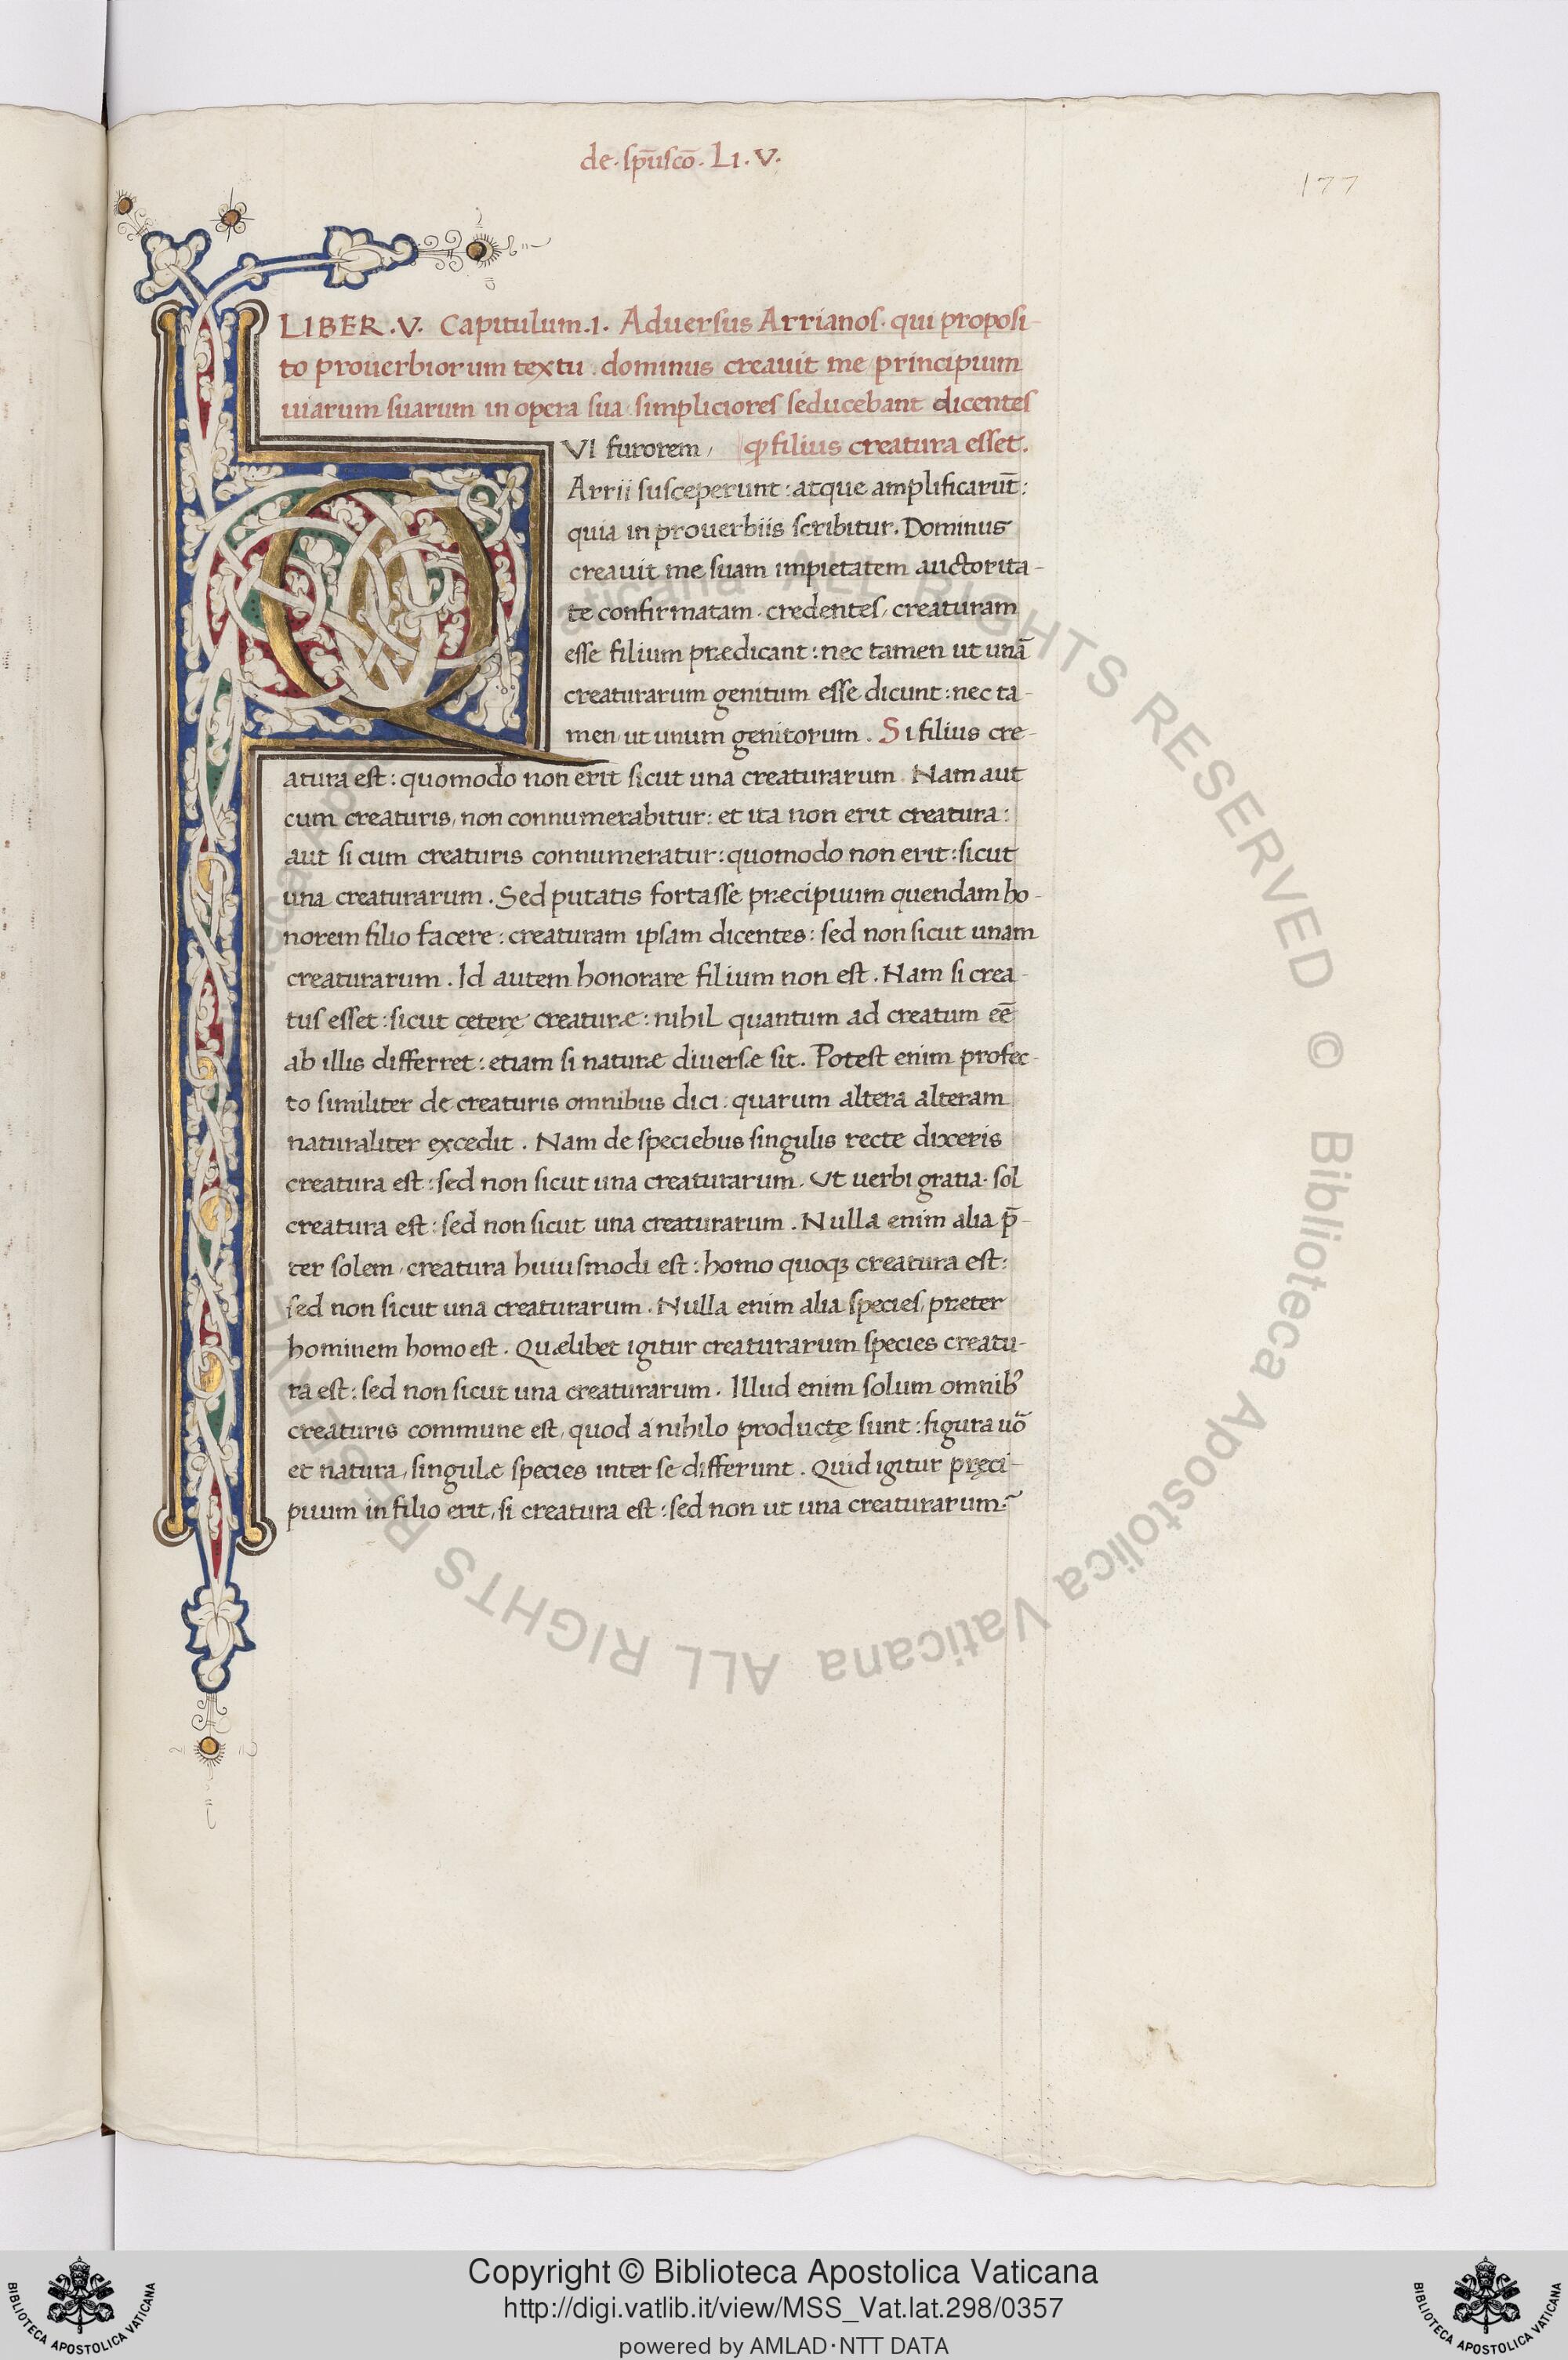 de. sp̄uscō. LI. V.
177
LIBER .V. Capitulum .1. Aduersus Arrianos. qui proposi-
to prouerbiorum textu . dominus creauit me principium
uiarum suarum in opera sua simpliciores seducebant dicentes
QVI furorem, ꝙ filius creatura esset.
Arrii susceperunt : atque amplificarūt :
quia in prouerbiis scribitur. Dominus
creauit me suam impietatem auctorita-
te confirmatam. credentes, creaturam
esse filium prædicant : nec tamen ut unā
creaturarum genitum esse dicunt : nec ta-
men, ut unum genitorum . Si filius cre-
atura est : quomodo non erit sicut una creaturarum. Nam aut
cum creaturis, non connumerabitur : et ita non erit creatura :
aut si cum creaturis connumeratur : quomodo non erit : sicut
una creaturarum . Sed putatis fortasse præcipuum quendam ho-
norem filio facere : creaturam ipsam dicentes : sed non sicut unam
creaturarum . Id autem honorare filium non est . Nam si crea-
tus esset : sicut cęterę creaturæ : nihil quantum ad creatum eē
ab illis differret : etiam si naturæ diuersæ sit. Potest enim profec-
to similiter de creaturis omnibus dici : quarum altera alteram
naturaliter excedit . Nam de speciebus singulis recte dixeris
creatura est : sed non sicut una creaturarum. Ut uerbi gratia. sol
creatura est : sed non sicut una creaturarum . Nulla enim alia p̄-
ter solem, creatura huiusmodi est : homo quoqꝫ creatura est :
sed non sicut una creaturarum . Nulla enim alia species, præter
hominem homo est . Quælibet igitur creaturarum species creatu-
ra est : sed non sicut una creaturarum . Illud enim solum omnibꝰ
creaturis commune est, quod a nihilo productę sunt : figura uō
et natura, singulæ species inter se differunt . Quid igitur pręci-
puum in filio erit, si creatura est : sed non ut una creaturarum?
aticana ALL RIGHTS RESERVED © Biblioteca Apostolica Vaticana ALL RIGHTS RESERVED
Copyright © Biblioteca Apostolica Vaticana
http://digi.vatlib.it/view/MSS_Vat.lat.298/0357
powered by AMLAD·NTT DATA
BIBLIOTECA APOSTOLICA VATICANA
BIBLIOTECA APOSTOLICA VATICANA